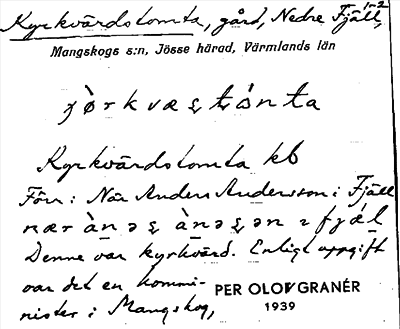 Kyrkvärdstomta, gård, Nedre Fjäll, 1-2
Mangskogs s:n, Jösse härad, Värmlands län
Kyrkvärdstomta kb
Förr: När Anders Andersson i Fjäll
Denne var kyrkvärd. Enligt uppgift
var det en kommi-
nister i Mangskog,
PER OLOV GRANÉR
1939